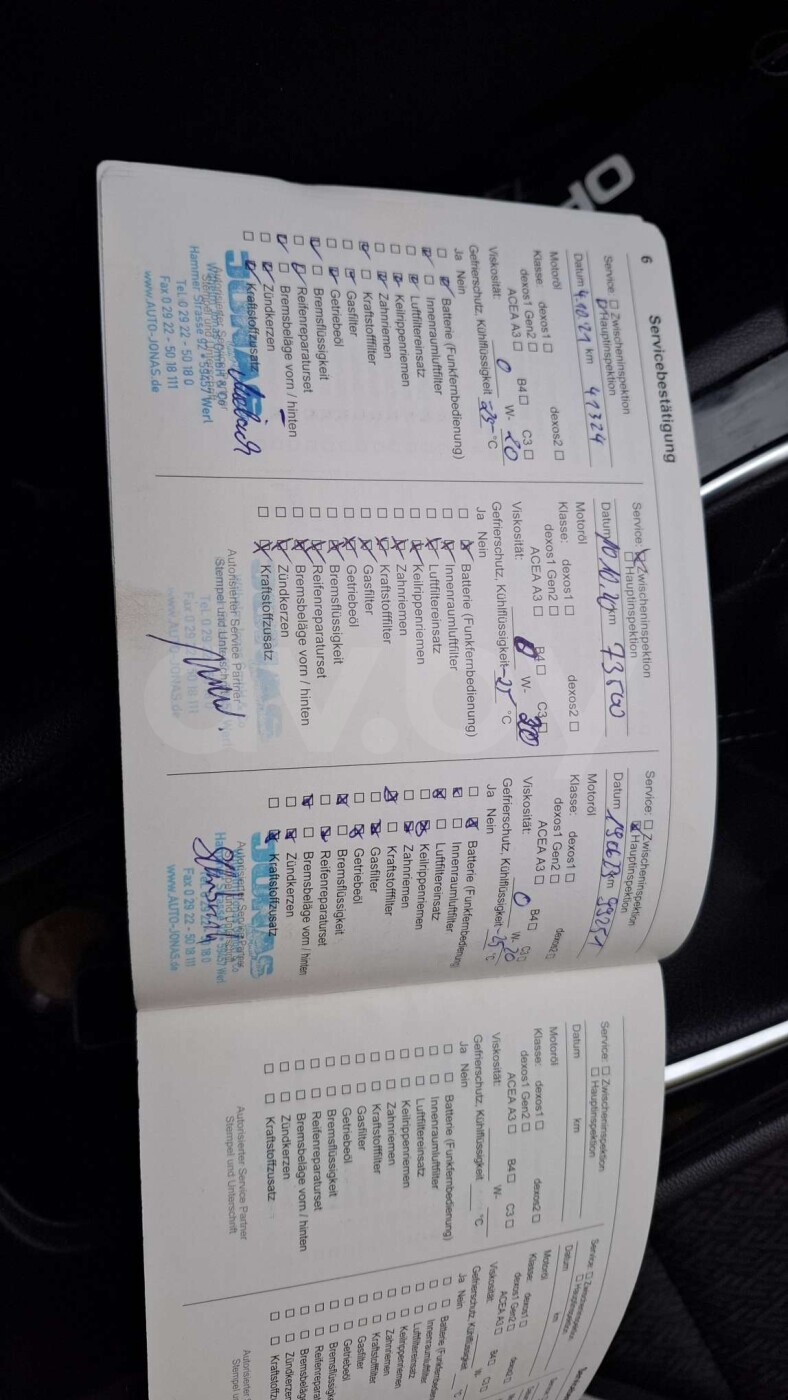 OP
6
Servicebestätigung
Service: Zwischeninspektion
Hauptinspektion
Datum 4.10.21 km 41324
Motoröl
Klasse: dexos1 dexos2
dexos1 Gen2
ACEA A3 B4 C3
Viskosität: 0 W- 20
Gefrierschutz, Kühlflüssigkeit -25 °C
Ja Nein
Batterie (Funkfernbedienung)
Innenraumluftfilter
Luftfiltereinsatz
Keilrippenriemen
Zahnriemen
Kraftstofffilter
Gasfilter
Getriebeöl
Bremsflüssigkeit
Reifenreparaturset
Bremsbeläge vorn / hinten
Zündkerzen
Kraftstoffzusatz
JONAS
Hammer Strasse 92 • 59457 Werl
Tel. 0 29 22 - 50 18 0
Fax 0 29 22 - 50 18 111
www.AUTO-JONAS.de
Service: Zwischeninspektion
Hauptinspektion
Datum km 73500
Motoröl
Klasse: dexos1 dexos2
dexos1 Gen2
ACEA A3 B4 C3
Viskosität: 0 W-
Gefrierschutz, Kühlflüssigkeit -25 °C
Ja Nein
Batterie (Funkfernbedienung)
Innenraumluftfilter
Luftfiltereinsatz
Keilrippenriemen
Zahnriemen
Kraftstofffilter
Gasfilter
Getriebeöl
Bremsflüssigkeit
Reifenreparaturset
Bremsbeläge vorn / hinten
Zündkerzen
Kraftstoffzusatz
Autorisierter Service Partner
Stempel und Unterschrift
www.AUTO-JONAS.de
Service: Zwischeninspektion
Hauptinspektion
Datum km 99051
Motoröl
Klasse: dexos1 dexos2
dexos1 Gen2
ACEA A3 B4 C3
Viskosität: 0 W- 20
Gefrierschutz, Kühlflüssigkeit -25 °C
Ja Nein
Batterie (Funkfernbedienung
Innenraumluftfilter
Luftfiltereinsatz
Keilrippenriemen
Zahnriemen
Kraftstofffilter
Gasfilter
Getriebeöl
Bremsflüssigkeit
Reifenreparaturset
Bremsbeläge vorn / hinten
Zündkerzen
Kraftstoffzusatz
JONAS
Fax 0 29 22 - 50 18 111
www.AUTO-JONAS.de
Service: Zwischeninspektion
Hauptinspektion
Datum km
Motoröl
Klasse: dexos1 dexos2
dexos1 Gen2
ACEA A3 B4 C3
Viskosität: W-
Gefrierschutz, Kühlflüssigkeit °C
Ja Nein
Batterie (Funkfernbedienung)
Innenraumluftfilter
Luftfiltereinsatz
Keilrippenriemen
Zahnriemen
Kraftstofffilter
Gasfilter
Getriebeöl
Bremsflüssigkeit
Reifenreparaturset
Bremsbeläge vorn / hinten
Zündkerzen
Kraftstoffzusatz
Autorisierter Service Partner
Stempel und Unterschrift
Service: Zwischeninspektion
Hauptinspektion
Datum km
Motoröl
Klasse: dexos1
dexos1 Gen2
ACEA A3 B4 C3
Viskosität: W-
Gefrierschutz, Kühlflüssigkeit °C
Ja Nein
Batterie
Innenraumluftfilter
Luftfiltereinsatz
Keilrippenriemen
Zahnriemen
Kraftstofffilter
Gasfilter
Getriebeöl
Bremsflüssigkeit
Zündkerzen
Autorisierter
av.by